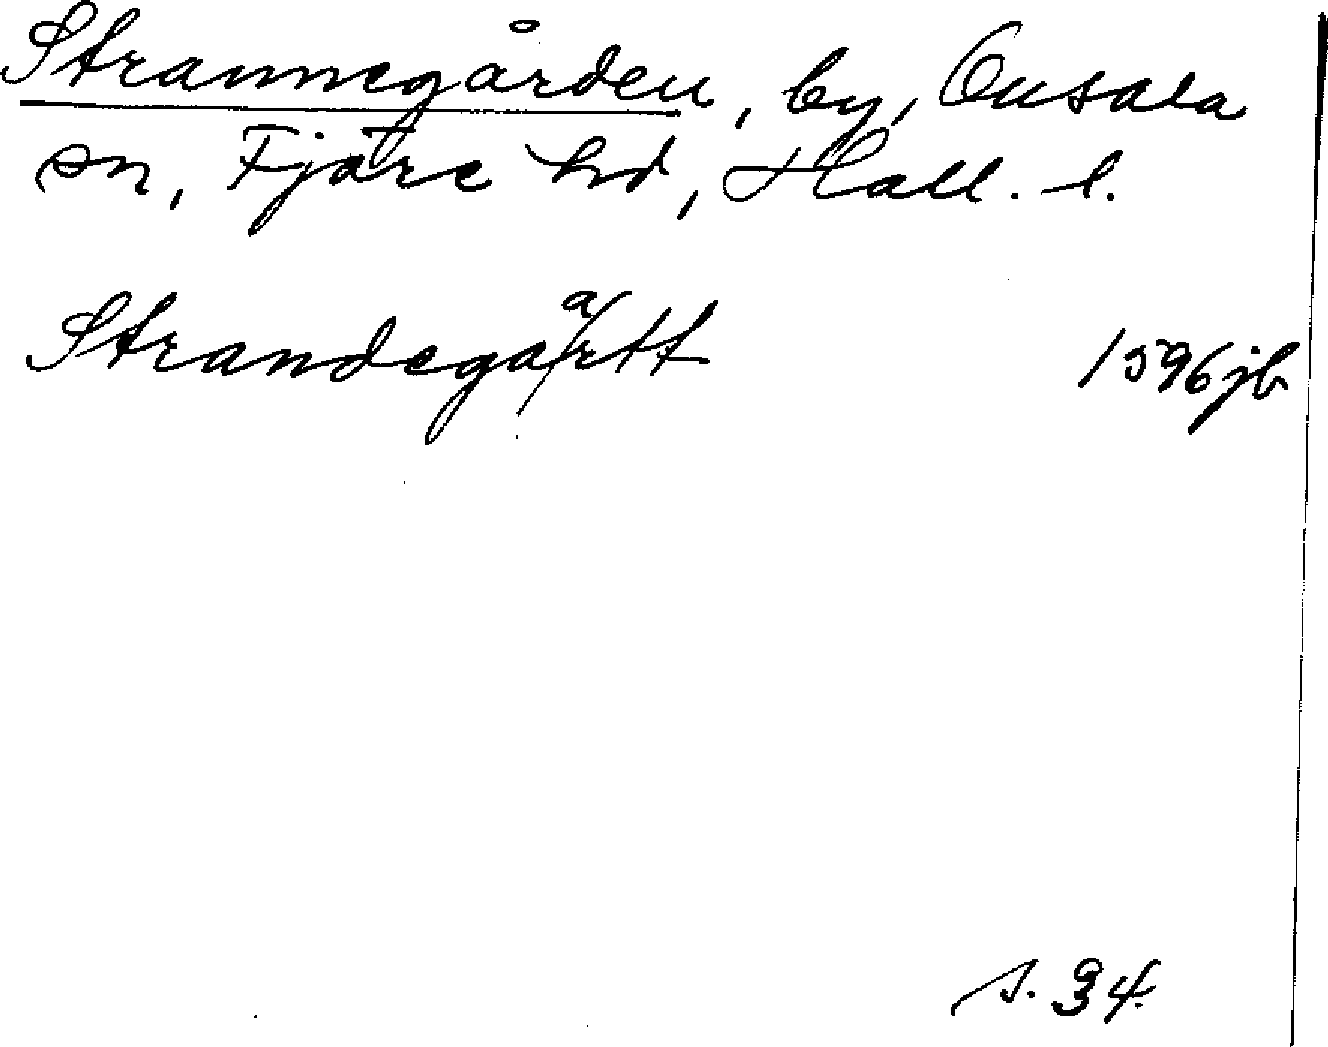 Strannegården, by, Onsala
sn, Fjäre hd, Hall. l.
Strandegaartt 1596 jb
s. 34.